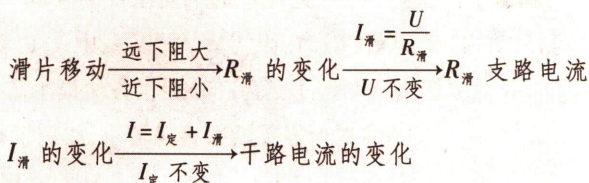 滑片移动 \xrightarrow[近下阻小]{远下阻大} R_滑 的变化 \xrightarrow[U 不变]{I_滑 = \frac{U}{R_滑}} R_滑 支路电流
I_滑 的变化 \xrightarrow[I_定 不变]{I = I_定 + I_滑} 干路电流的变化